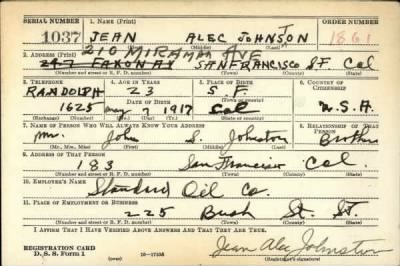 SERIAL NUMBER 1. NAME (Print) ORDER NUMBER
1037 JEAN ALEC JOHNSTON 1861
(First) (Middle) (Last)
210 MIRAMAR AVE
2. ADDRESS (Print)
247 FAXON AV SAN FRANCISCO S.F. Cal
(Number and street or R. F. D. number) (Town) (County) (State)
3. TELEPHONE 4. AGE IN YEARS 5. PLACE OF BIRTH 6. COUNTRY OF CITIZENSHIP
RANDOLPH 23 S. F.
DATE OF BIRTH (Town or county)
1625 may 7 1917 Cal U.S.A.
(Exchange) (Number) (Mo.) (Day) (Yr.) (State or country)
7. NAME OF PERSON WHO WILL ALWAYS KNOW YOUR ADDRESS RELATIONSHIP OF THAT PERSON
Mr. John S. Johnston Brother
(Mr., Mrs., Miss) (First) (Middle) (Last)
8. ADDRESS OF THAT PERSON
183 San Francisco Cal.
(Number and street or R. F. D. number) (Town) (County) (State)
10. EMPLOYER'S NAME
Standard Oil Co.
11. PLACE OF EMPLOYMENT OR BUSINESS
225 Bush St. S.F.
(Number and street or R. F. D. number) (Town) (County) (State)
I AFFIRM THAT I HAVE VERIFIED ABOVE ANSWERS AND THAT THEY ARE TRUE.
REGISTRATION CARD
D. S. S. Form 1 (over) 16-17105 Jean Alec Johnston
(Registrant's signature)